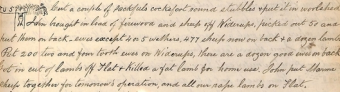 but a couple of neckfuls cocksfoot round stubbles & put it in woolshed
John brought in load of firewood and sheep off Widerups, picked out 50 and
put them on back. ewes except 4 or 5 wethers, 477 sheep now on back & a dozen lambs
Put 200 two and four tooth ewes on Widerups, there are a dozen good ewes on back
Got in cut of lambs off Flat & killed a fat lamb for home use. John put
sheep together for tomorrow's operation, and all our rape lambs on Flat.